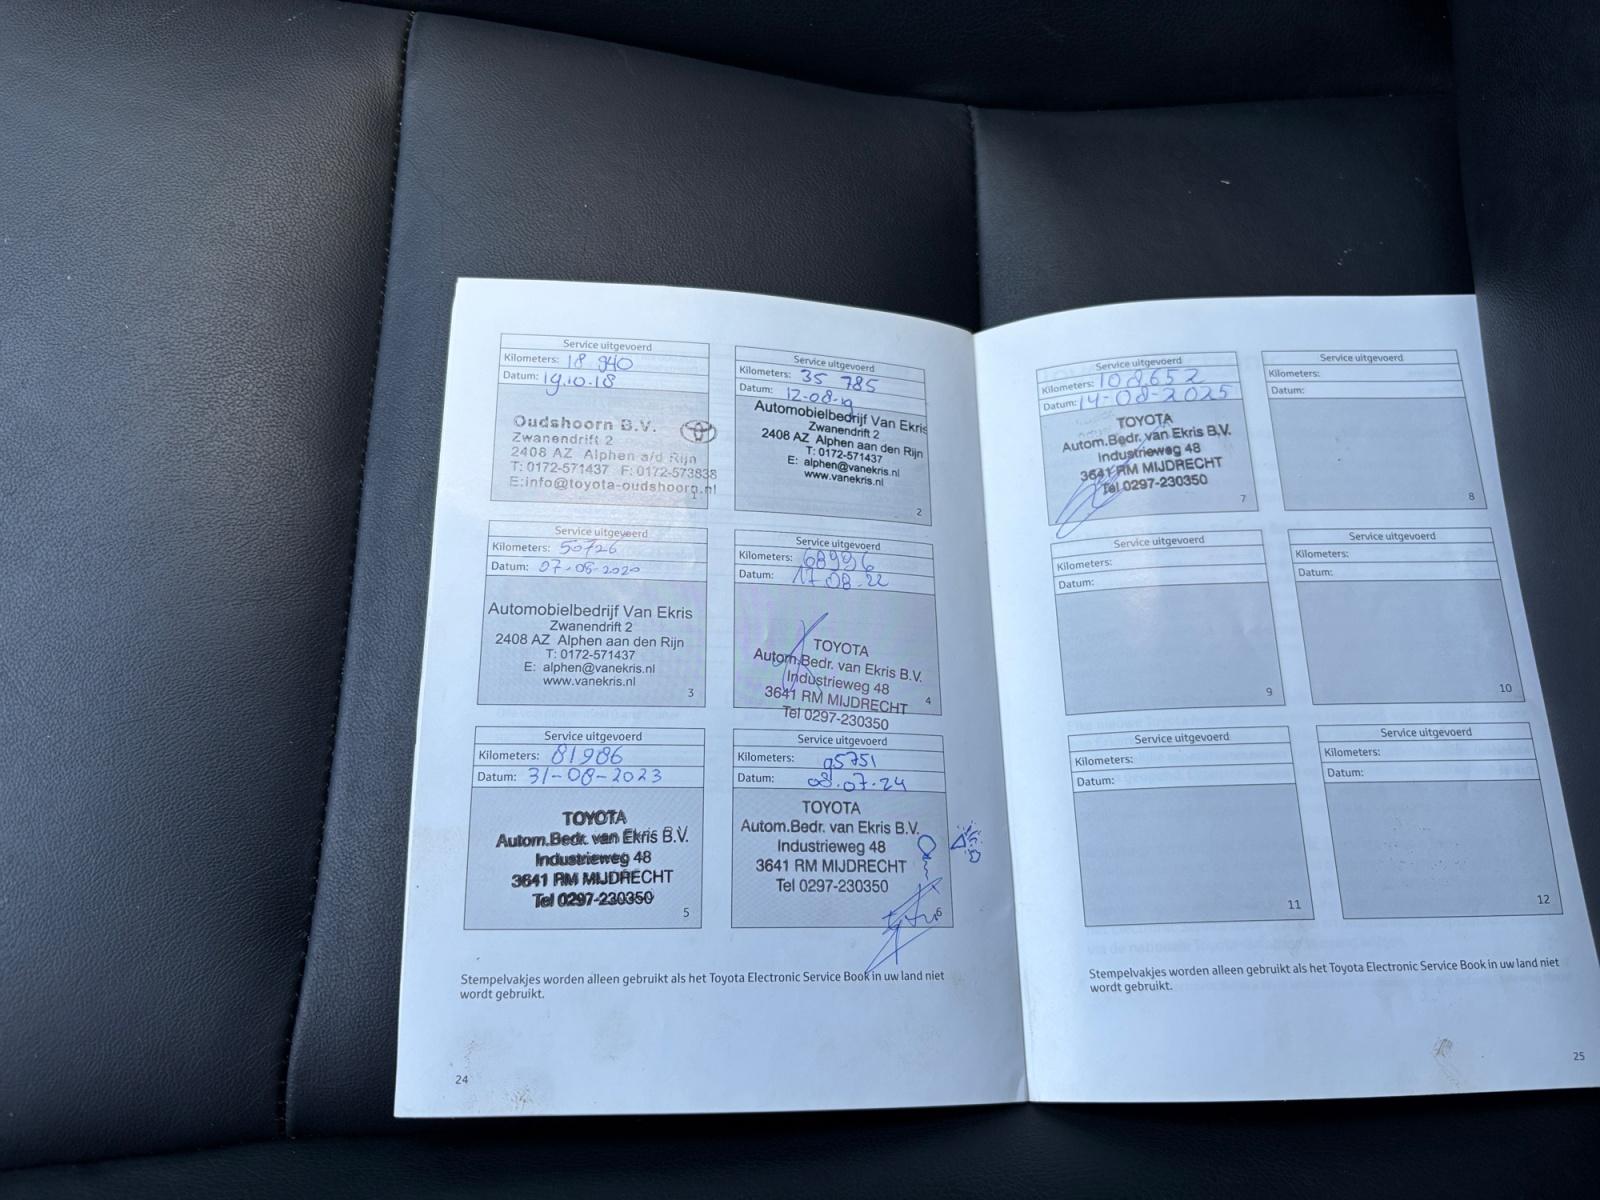 Service uitgevoerd
Kilometers: 18 940
Datum: 19.10.18
Oudshoorn B.V.
Zwanendrift 2
2408 AZ Alphen a/d Rijn
T: 0172-571437 F: 0172-573838
E:info@toyota-oudshoorn.nl
1
Service uitgevoerd
Kilometers: 35 785
Datum: 12-08-19
Automobielbedrijf Van Ekris
Zwanendrift 2
2408 AZ Alphen aan den Rijn
T: 0172-571437
E: alphen@vanekris.nl
www.vanekris.nl
2
Service uitgevoerd
Kilometers: 50726
Datum: 07-08-2020
Automobielbedrijf Van Ekris
Zwanendrift 2
2408 AZ Alphen aan den Rijn
T: 0172-571437
E: alphen@vanekris.nl
www.vanekris.nl
3
Service uitgevoerd
Kilometers: 68996
Datum: 17.08.22
TOYOTA
Autom.Bedr. van Ekris B.V.
Industrieweg 48
3641 RM MIJDRECHT
Tel 0297-230350
4
Service uitgevoerd
Kilometers: 81986
Datum: 31-08-2023
TOYOTA
Autom.Bedr. van Ekris B.V.
Industrieweg 48
3641 RM MIJDRECHT
Tel 0297-230350
5
Service uitgevoerd
Kilometers: 95751
Datum: 08.07.24
TOYOTA
Autom.Bedr. van Ekris B.V.
Industrieweg 48
3641 RM MIJDRECHT
Tel 0297-230350
6
Stempelvakjes worden alleen gebruikt als het Toyota Electronic Service Book in uw land niet
wordt gebruikt.
24
Service uitgevoerd
Kilometers: 108652
Datum: 14-08-2025
TOYOTA
Autom.Bedr. van Ekris B.V.
Industrieweg 48
3641 RM MIJDRECHT
Tel 0297-230350
7
Service uitgevoerd
Kilometers:
Datum:
8
Service uitgevoerd
Kilometers:
Datum:
9
Service uitgevoerd
Kilometers:
Datum:
10
Service uitgevoerd
Kilometers:
Datum:
11
Service uitgevoerd
Kilometers:
Datum:
12
Stempelvakjes worden alleen gebruikt als het Toyota Electronic Service Book in uw land niet
wordt gebruikt.
25